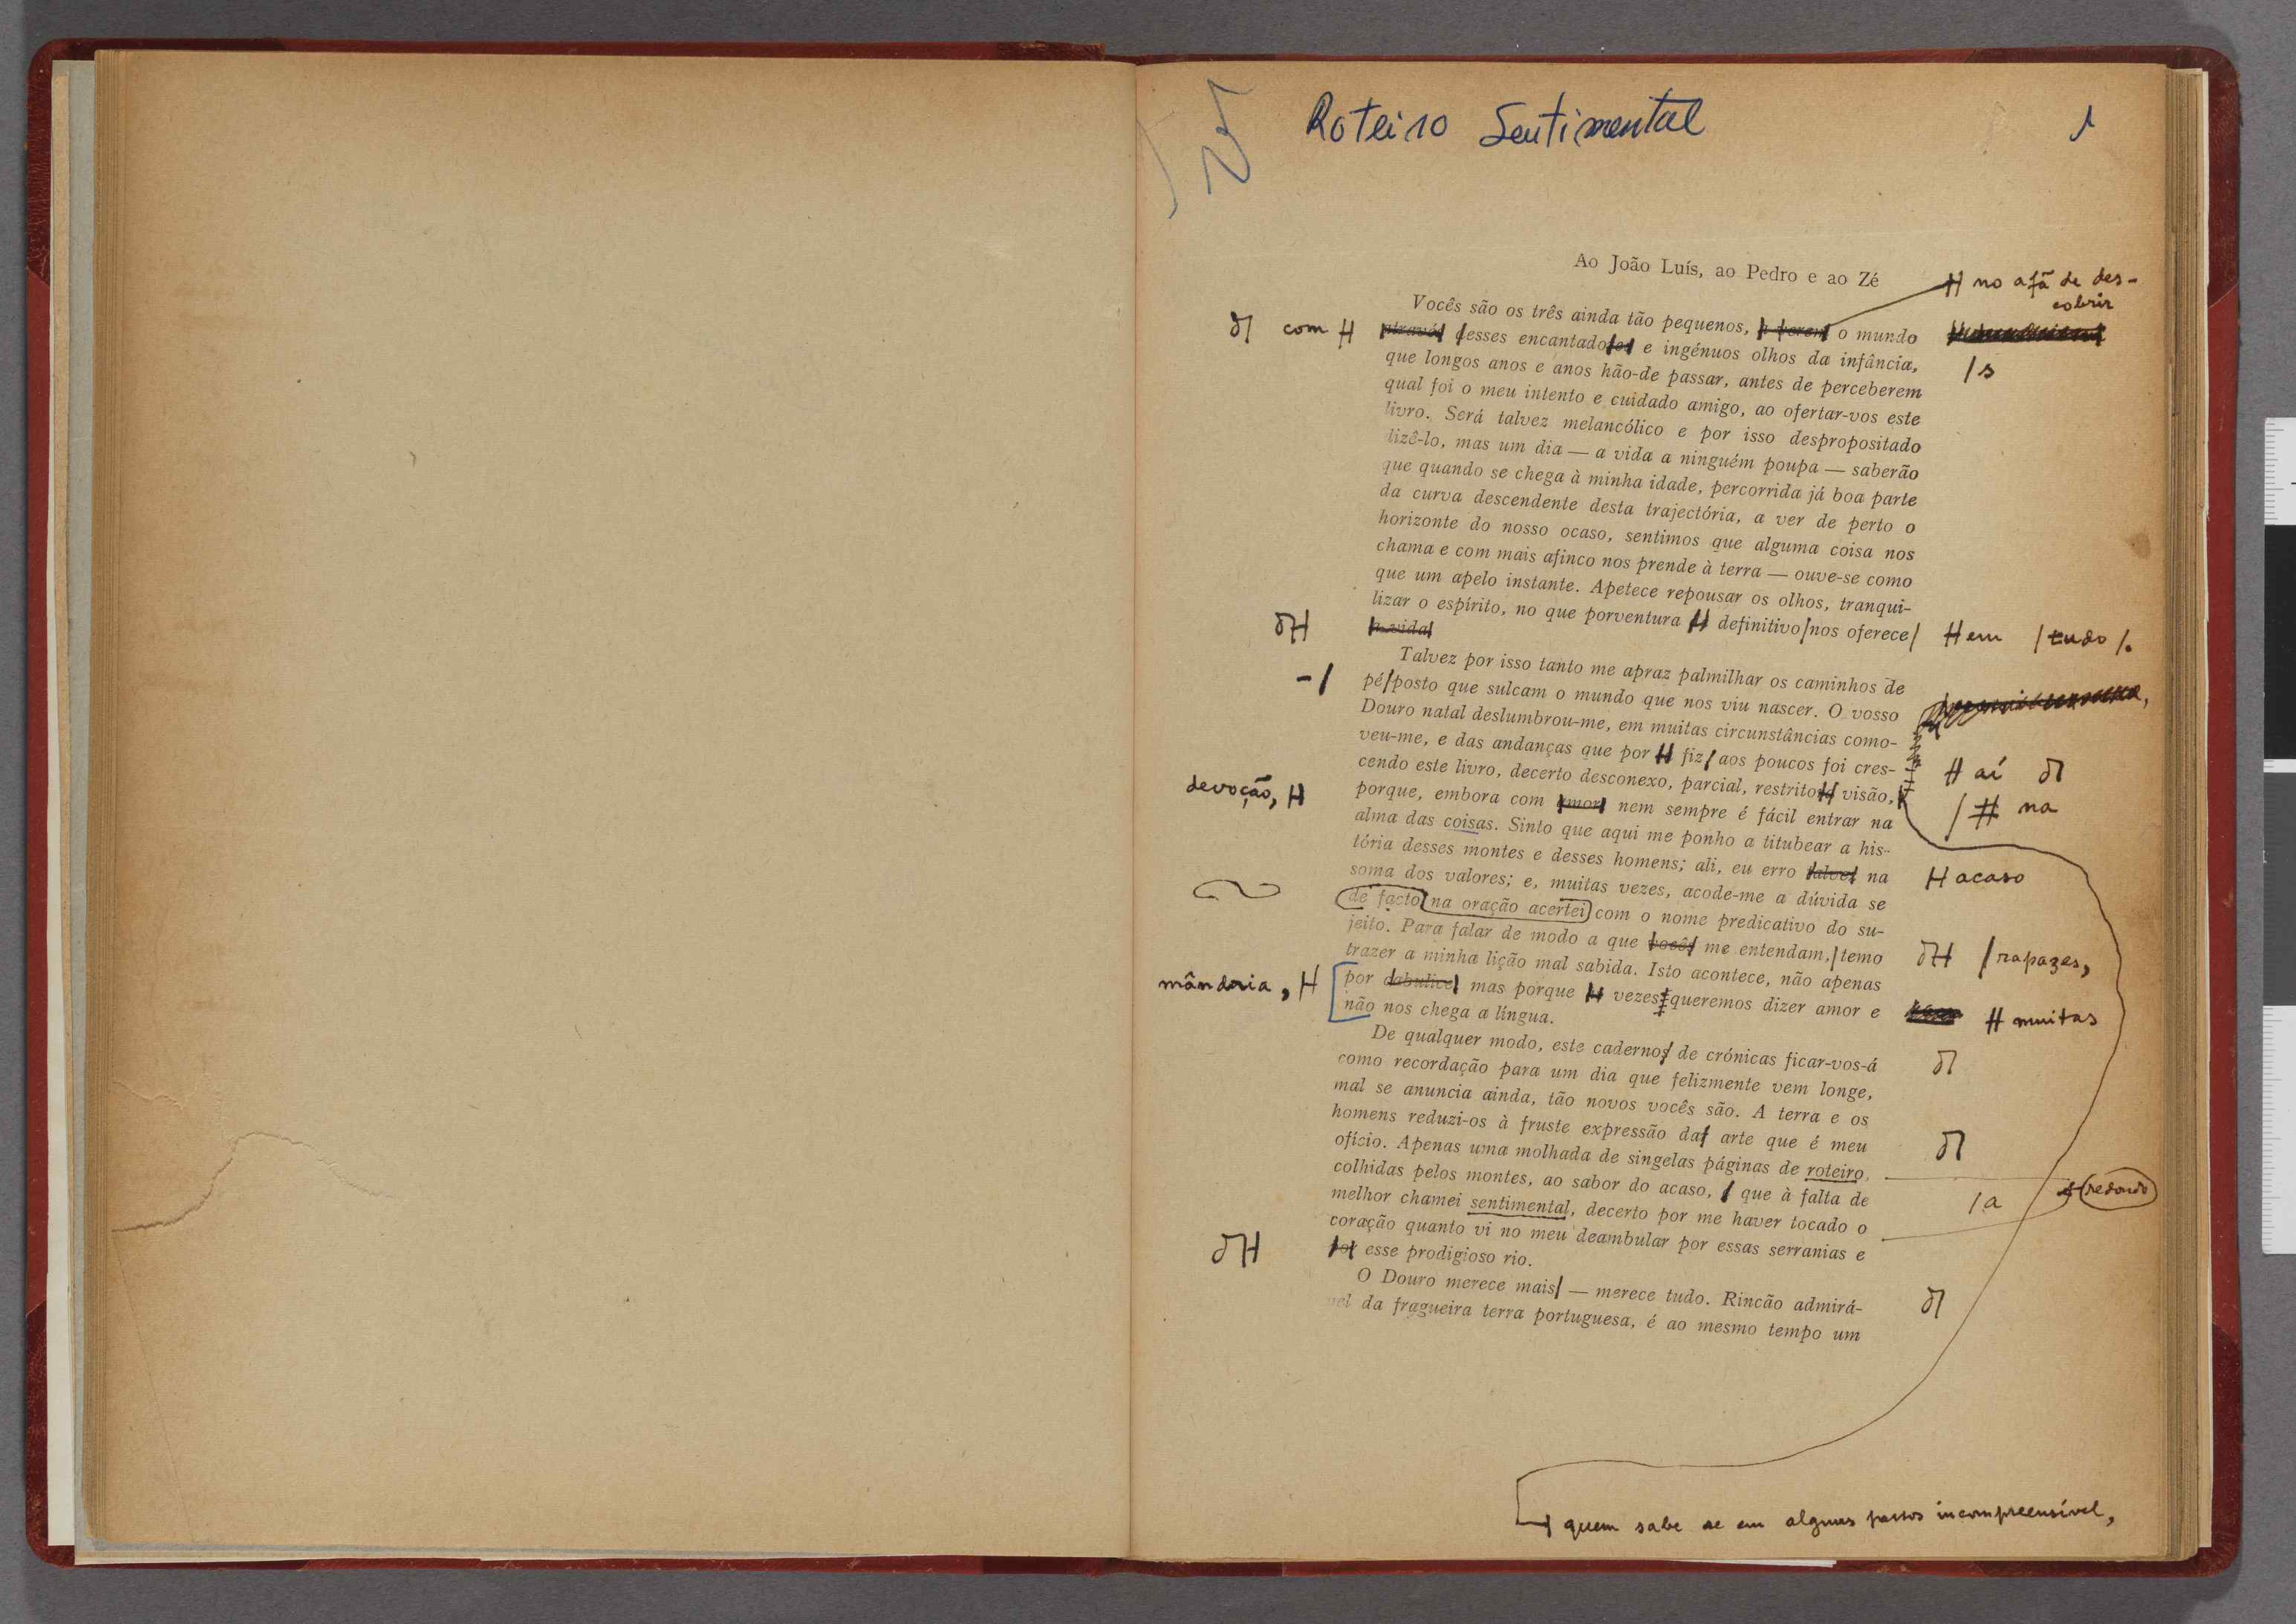 Roteiro Sentimental
1
Ao João Luís, ao Pedro e ao Zé
H no afã de des-
cobrir
Vocês são os três ainda tão pequenos, a verem o mundo
com H através desses encantadores e ingénuos olhos da infância,
/s
que longos anos e anos hão-de passar, antes de perceberem
qual foi o meu intento e cuidado amigo, ao ofertar-vos este
livro. Será talvez melancólico e por isso despropositado
dizê-lo, mas um dia — a vida a ninguém poupa — saberão
que quando se chega à minha idade, percorrida já boa parte
da curva descendente desta trajectória, a ver de perto o
horizonte do nosso ocaso, sentimos que alguma coisa nos
chama e com mais afinco nos prende à terra — ouve-se como
que um apelo instante. Apetece repousar os olhos, tranqui-
lizar o espírito, no que porventura definitivo nos oferece H em / tudo /.
a vida
Talvez por isso tanto me apraz palmilhar os caminhos de
-/ pé posto que sulcam o mundo que nos viu nascer. O vosso
Douro natal deslumbrou-me, em muitas circunstâncias como-
veu-me, e das andanças que por fiz aos poucos foi cres- H aí
cendo este livro, decerto desconexo, parcial, restrito visão, / # na
devoção, H porque, embora com amor nem sempre é fácil entrar na
alma das coisas. Sinto que aqui me ponho a titubear a his-
tória desses montes e desses homens; ali, eu erro talvez na H acaso
soma dos valores; e, muitas vezes, acode-me a dúvida se
de facto na oração acertei com o nome predicativo do su-
jeito. Para falar de modo a que vocês me entendam, temo / rapazes,
trazer a minha lição mal sabida. Isto acontece, não apenas
mândria, H por cabulice mas porque vezes queremos dizer amor e H muitas
não nos chega a língua.
De qualquer modo, este cadernos de crónicas ficar-vos-á
como recordação para um dia que felizmente vem longe,
mal se anuncia ainda, tão novos vocês são. A terra e os
homens reduzi-os à fruste expressão da arte que é meu
ofício. Apenas uma molhada de singelas páginas de roteiro,
colhidas pelos montes, ao sabor do acaso, que à falta de / a redondo
melhor chamei sentimental, decerto por me haver tocado o
coração quanto vi no meu deambular por essas serranias e
esse prodigioso rio.
O Douro merece mais — merece tudo. Rincão admirá-
vel da fragueira terra portuguesa, é ao mesmo tempo um
quem sabe se em alguns passos incompreensível,